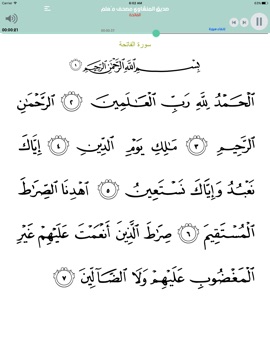 Carrier 6:52 AM
صديق المنشاوي مصحف معلم
الفاتحة
00:00:21 00:00:21
سورة الفاتحة
بِسْمِ ٱللَّهِ ٱلرَّحْمَٰنِ ٱلرَّحِيمِ ١
ٱلْحَمْدُ لِلَّهِ رَبِّ ٱلْعَٰلَمِينَ ٢ ٱلرَّحْمَٰنِ
ٱلرَّحِيمِ ٣ مَٰلِكِ يَوْمِ ٱلدِّينِ ٤ إِيَّاكَ
نَعْبُدُ وَإِيَّاكَ نَسْتَعِينُ ٥ ٱهْدِنَا ٱلصِّرَٰطَ
ٱلْمُسْتَقِيمَ ٦ صِرَٰطَ ٱلَّذِينَ أَنْعَمْتَ عَلَيْهِمْ غَيْرِ
ٱلْمَغْضُوبِ عَلَيْهِمْ وَلَا ٱلضَّآلِّينَ ٧